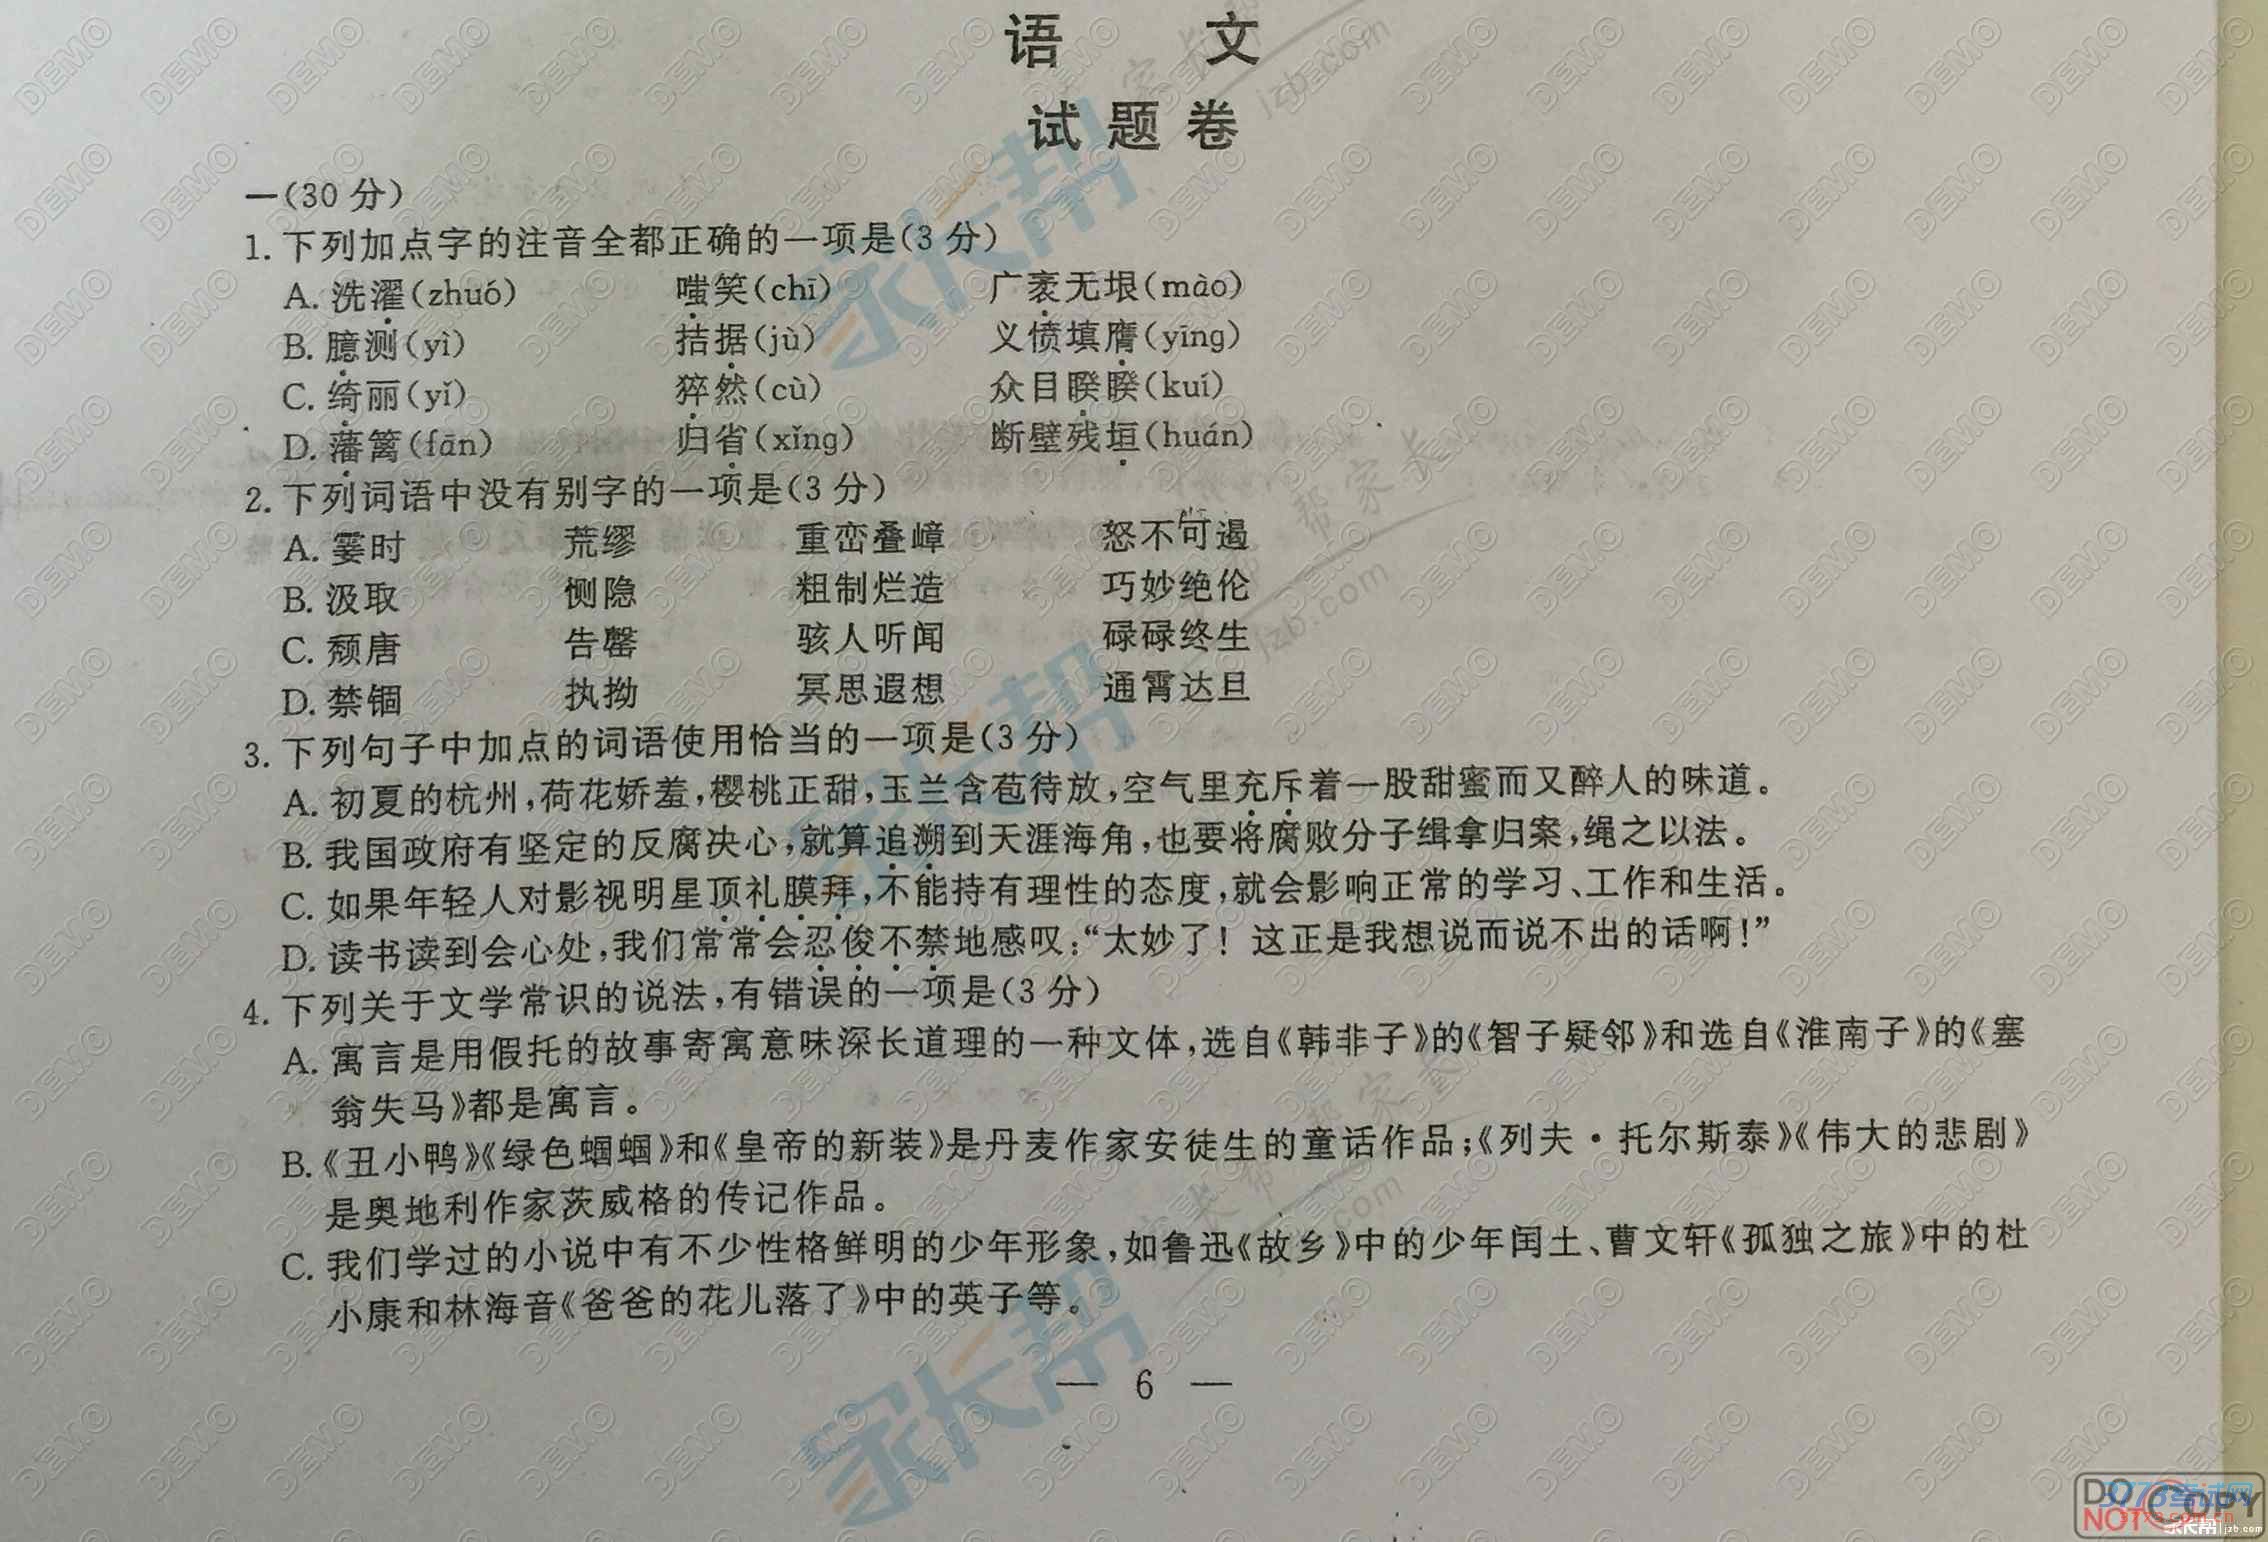 语 文
试题卷
一(30分)
1. 下列加点字的注音全都正确的一项是(3分)
A. 洗濯(zhuó) 嗤笑(chī) 广袤无垠(mào)
B. 臆测(yì) 拮据(jù) 义愤填膺(yīng)
C. 绮丽(yǐ) 猝然(cù) 众目睽睽(kuí)
D. 藩篱(fān) 归省(xǐng) 断壁残垣(huán)
2. 下列词语中没有别字的一项是(3分)
A. 霎时 荒缪 重峦叠嶂 怒不可遏
B. 汲取 恻隐 粗制烂造 巧妙绝伦
C. 颓唐 告罄 骇人听闻 碌碌终生
D. 禁锢 执拗 冥思遐想 通霄达旦
3. 下列句子中加点的词语使用恰当的一项是(3分)
A. 初夏的杭州,荷花娇羞,樱桃正甜,玉兰含苞待放,空气里充斥着一股甜蜜而又醉人的味道。
B. 我国政府有坚定的反腐决心,就算追溯到天涯海角,也要将腐败分子缉拿归案,绳之以法。
C. 如果年轻人对影视明星顶礼膜拜,不能持有理性的态度,就会影响正常的学习、工作和生活。
D. 读书读到会心处,我们常常会忍俊不禁地感叹:“太妙了! 这正是我想说而说不出的话啊!”
4. 下列关于文学常识的说法,有错误的一项是(3分)
A. 寓言是用假托的故事寄寓意味深长道理的一种文体,选自《韩非子》的《智子疑邻》和选自《淮南子》的《塞
翁失马》都是寓言。
B.《丑小鸭》《绿色蝈蝈》和《皇帝的新装》是丹麦作家安徒生的童话作品;《列夫·托尔斯泰》《伟大的悲剧》
是奥地利作家茨威格的传记作品。
C. 我们学过的小说中有不少性格鲜明的少年形象,如鲁迅《故乡》中的少年闰土、曹文轩《孤独之旅》中的杜
小康和林海音《爸爸的花儿落了》中的英子等。
— 6 —